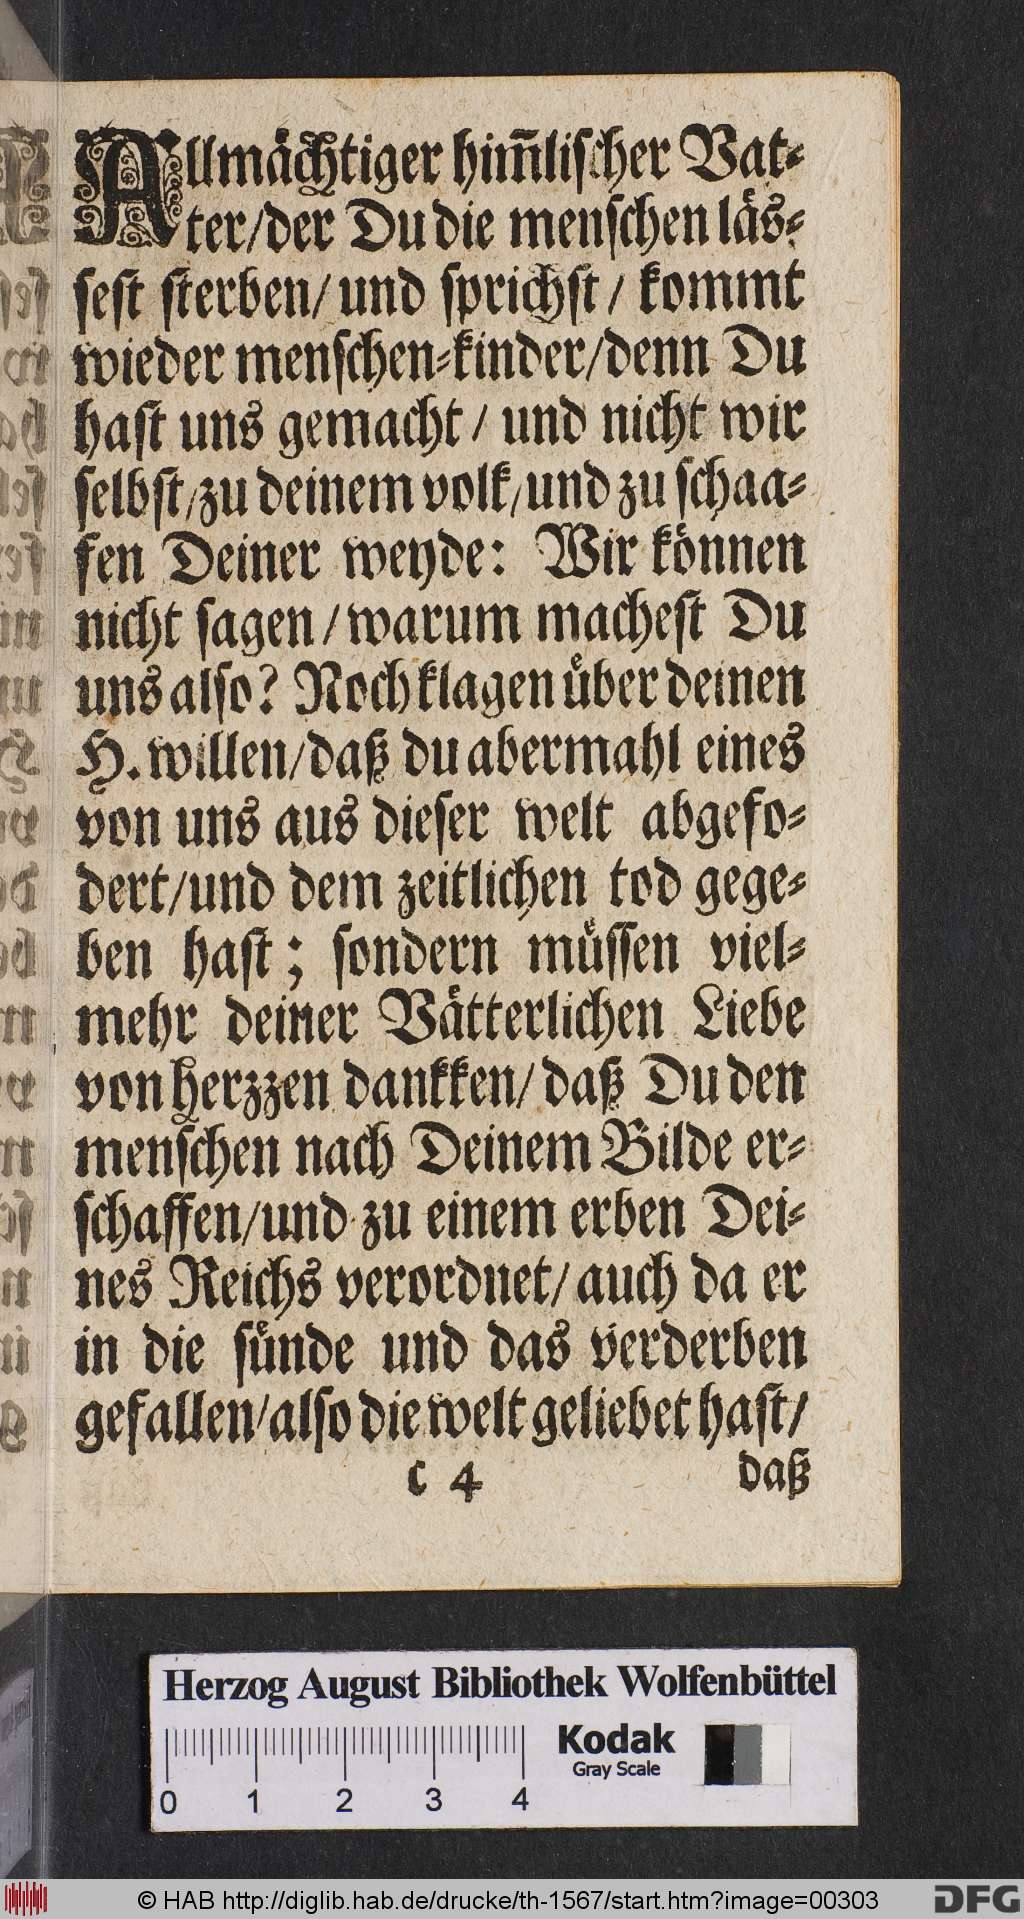 Allmächtiger him̃lischer Vat⸗
ter/der Du die menschen läs⸗
sest sterben/ und sprichst/ kommt
wieder menschen⸗kinder/denn Du
hast uns gemacht/ und nicht wir
selbst/zu deinem volk/und zu schaa⸗
fen Deiner weyde: Wir können
nicht sagen/warum machest Du
uns also? Noch klagen über deinen
H. willen/daß du abermahl eines
von uns aus dieser welt abgefo⸗
dert/und dem zeitlichen tod gege⸗
ben hast; sondern müssen viel⸗
mehr deiner Vätterlichen Liebe
von herzzen dankken/ daß Du den
menschen nach Deinem Bilde er⸗
schaffen/und zu einem erben Dei⸗
nes Reichs verordnet/ auch da er
in die sünde und das verderben
gefallen/also die welt geliebet hast/
c 4 daß
Herzog August Bibliothek Wolfenbüttel
Kodak
Gray Scale
0 1 2 3 4
© HAB http://diglib.hab.de/drucke/th-1567/start.htm?image=00303
DFG